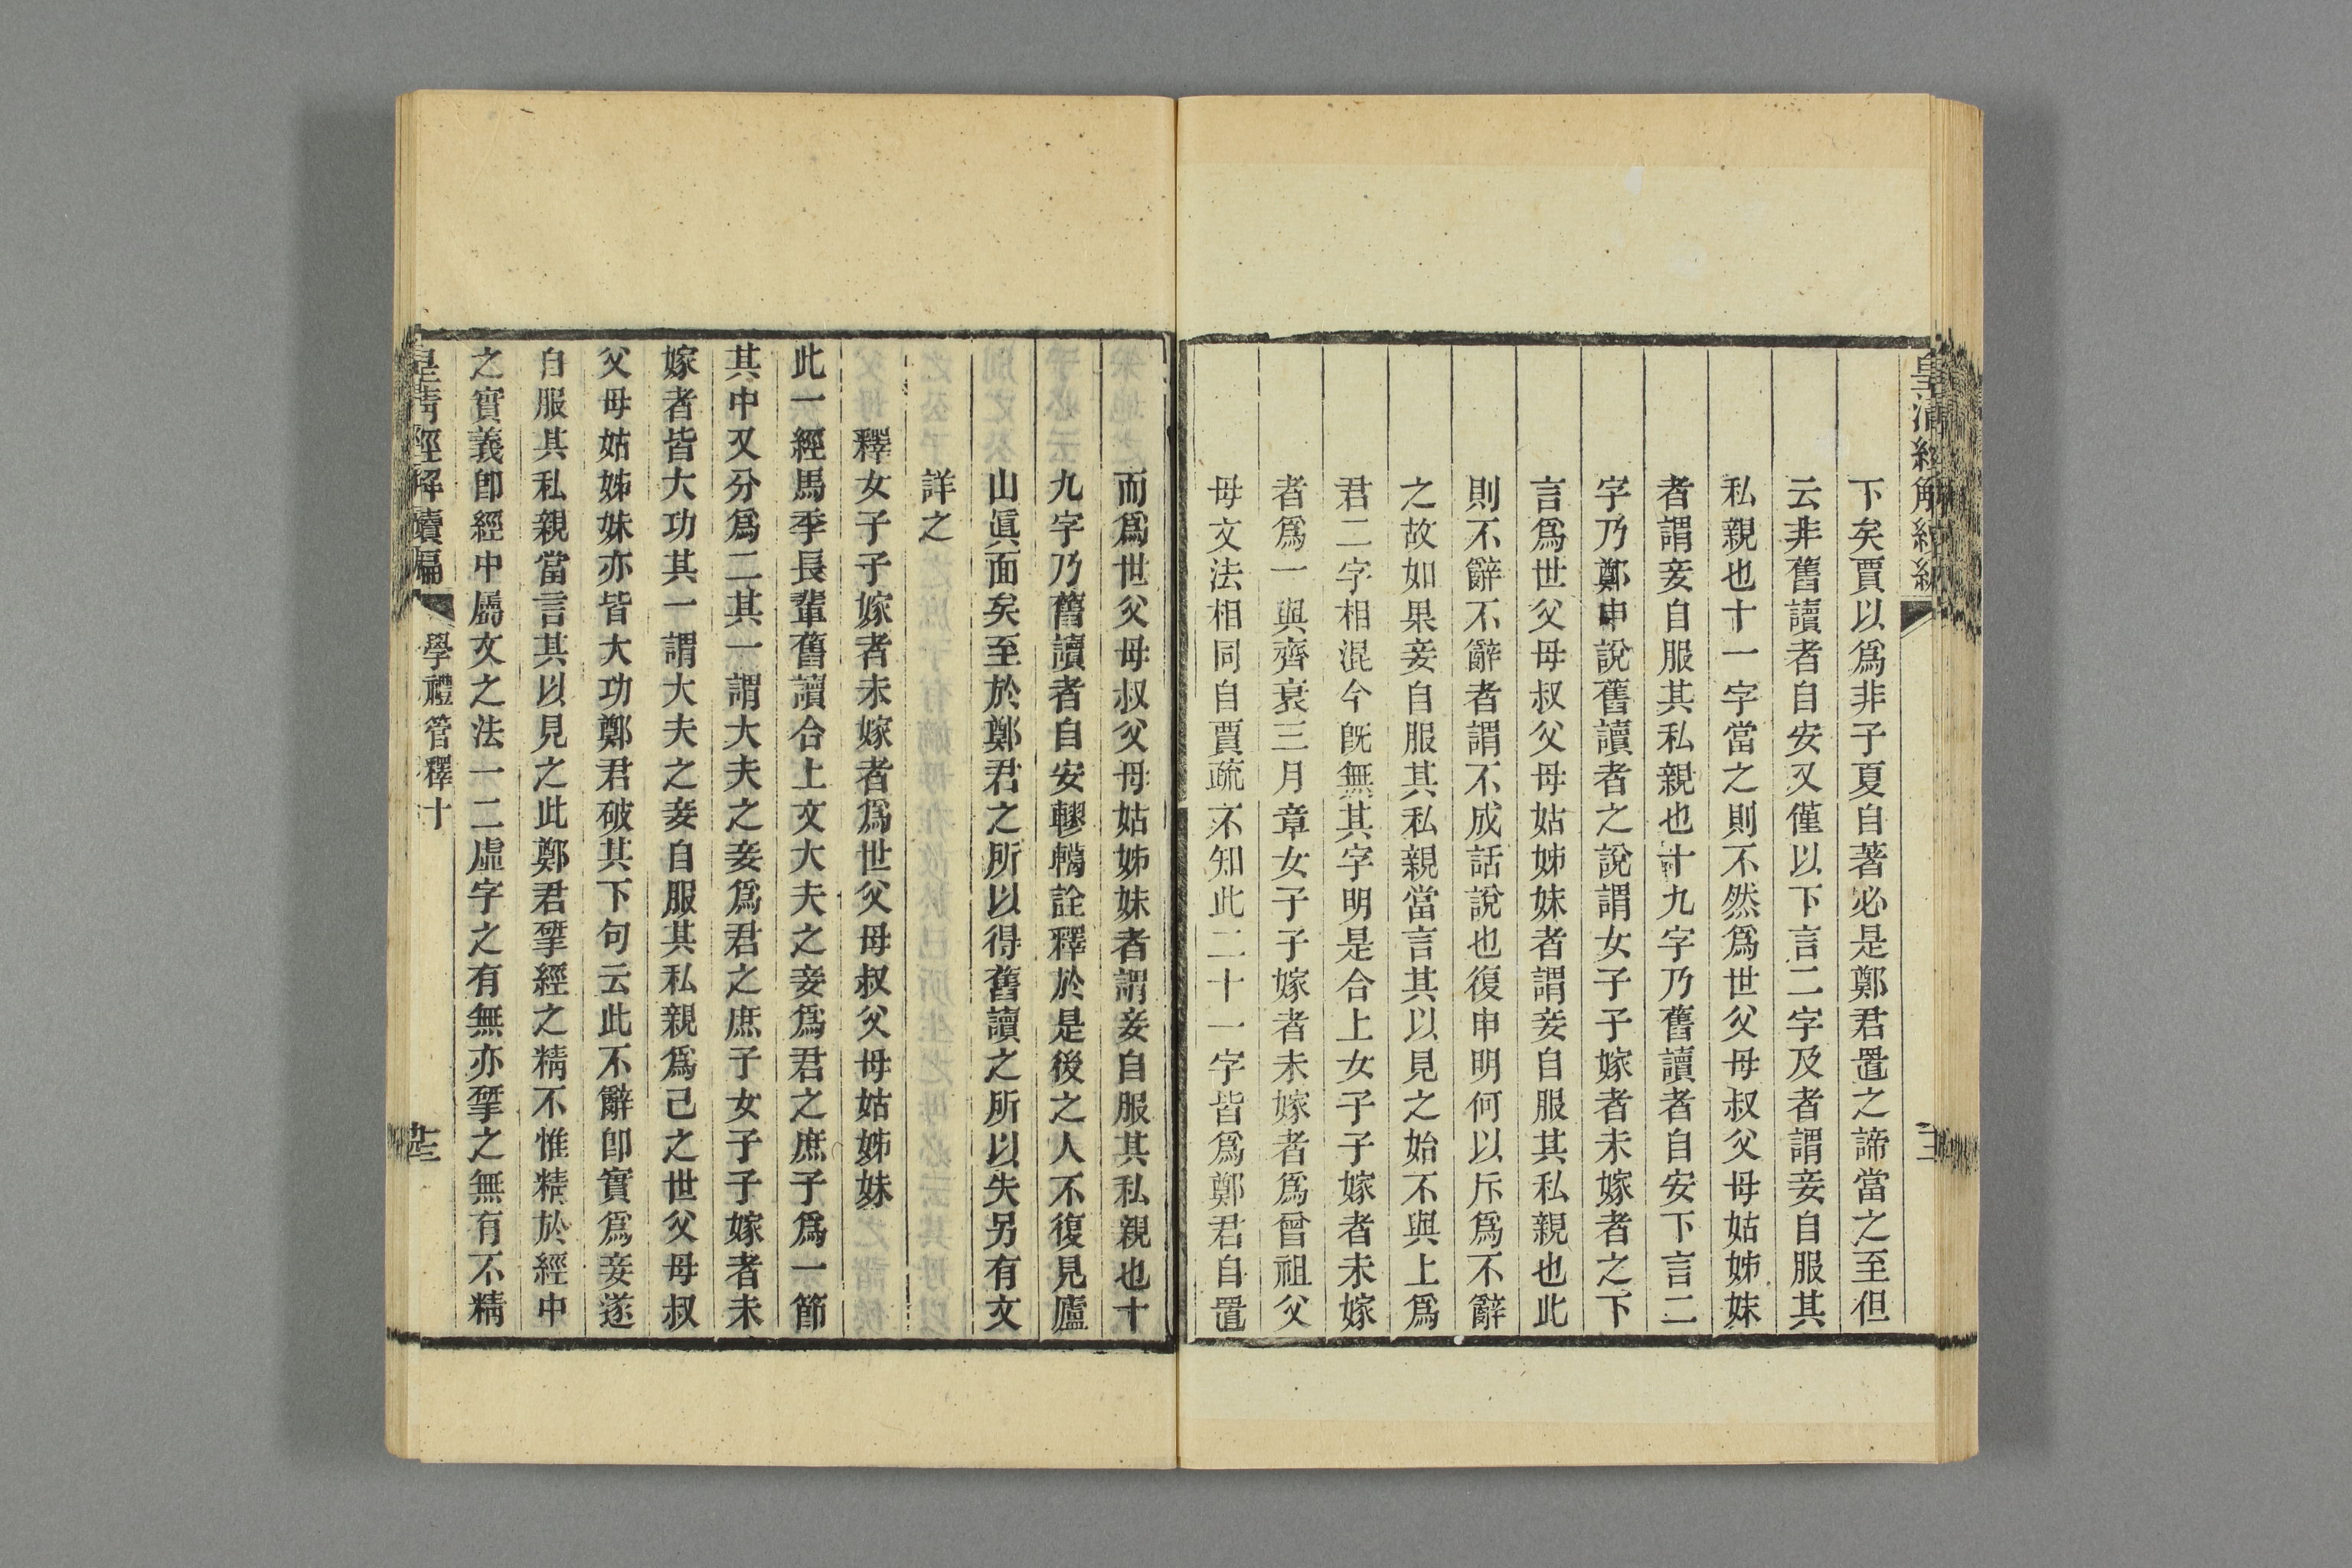 下矣賈以爲非子夏自著必是鄭君置之諦當之至但
云非舊讀者自安又僅以下言二字及者謂妾自服其
私親也十一字當之則不然爲世父母叔父母姑姊妹
者謂妾自服其私親也十九字乃舊讀者自安下言二
字乃鄭申說舊讀者之說謂女子子嫁者未嫁者之下
言爲世父母叔父母姑姊妹者謂妾自服其私親也此
則不辭不辭者謂不成話說也復申明何以斥爲不辭
之故如果妾自服其私親當言其以見之始不與上爲
君二字相混今既無其字明是合上女子子嫁者未嫁
者爲一與齊衰三月章女子子嫁者未嫁者爲曾祖父
母文法相同自賈疏不知此二十一字皆爲鄭君自置
而爲世父母叔父母姑姊妹者謂妾自服其私親也十
九字乃舊讀者自安轇轕詮釋於是後之人不復見廬
山眞面矣至於鄭君之所以得舊讀之所以失另有文
詳之
釋女子子嫁者未嫁者爲世父母叔父母姑姊妹
此一經馬季長輩舊讀合上文大夫之妾爲君之庶子爲一節
其中又分爲二其一謂大夫之妾爲君之庶子女子子嫁者未
嫁者皆大功其一謂大夫之妾自服其私親爲己之世父母叔
父母姑姊妹亦皆大功鄭君破其下句云此不辭卽實爲妾遂
自服其私親當言其以見之此鄭君揅經之精不惟精於經中
之實義卽經中屬文之法一二虛字之有無亦揅之無有不精
皇清經解續編
學禮管釋十